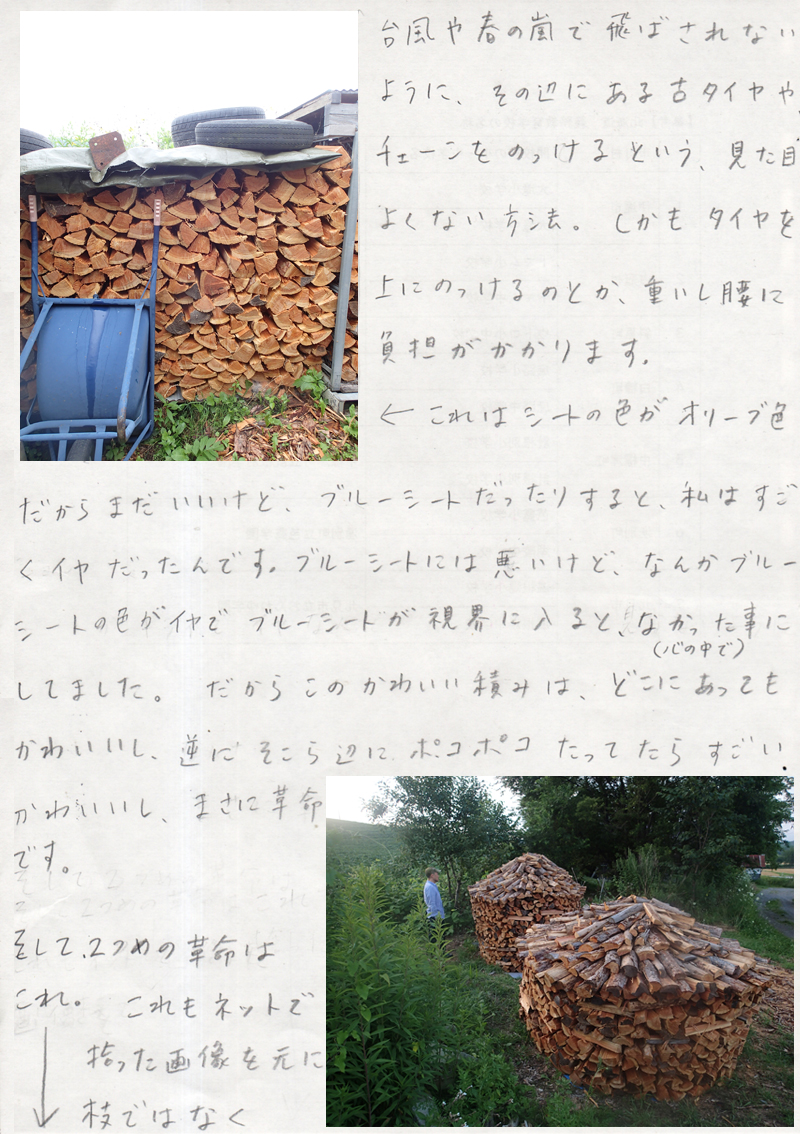 台風や春の嵐で飛ばされない
ように、その辺にある古タイヤや
チェーンをのっけるという、見た目
よくない方法。しかもタイヤを
上にのっけるのとか、重いし腰に
負担がかかります。
← これはシートの色がオリーブ色
だからまだいいけど、ブルーシートだったりすると、私はすご
くイヤだったんです。ブルーシートには悪いけど、なんかブルー
シートの色がイヤでブルーシートが視界に入ると、なかった事に
(心の中で)
してました。だからこのかわいい積みは、どこにあっても
かわいいし、逆にそこら辺にポコポコたってたらすごい
かわいいし、まさに革命
です。
そして、2つめの革命は
これ。これもネットで
拾った画像を元に
枝ではなく